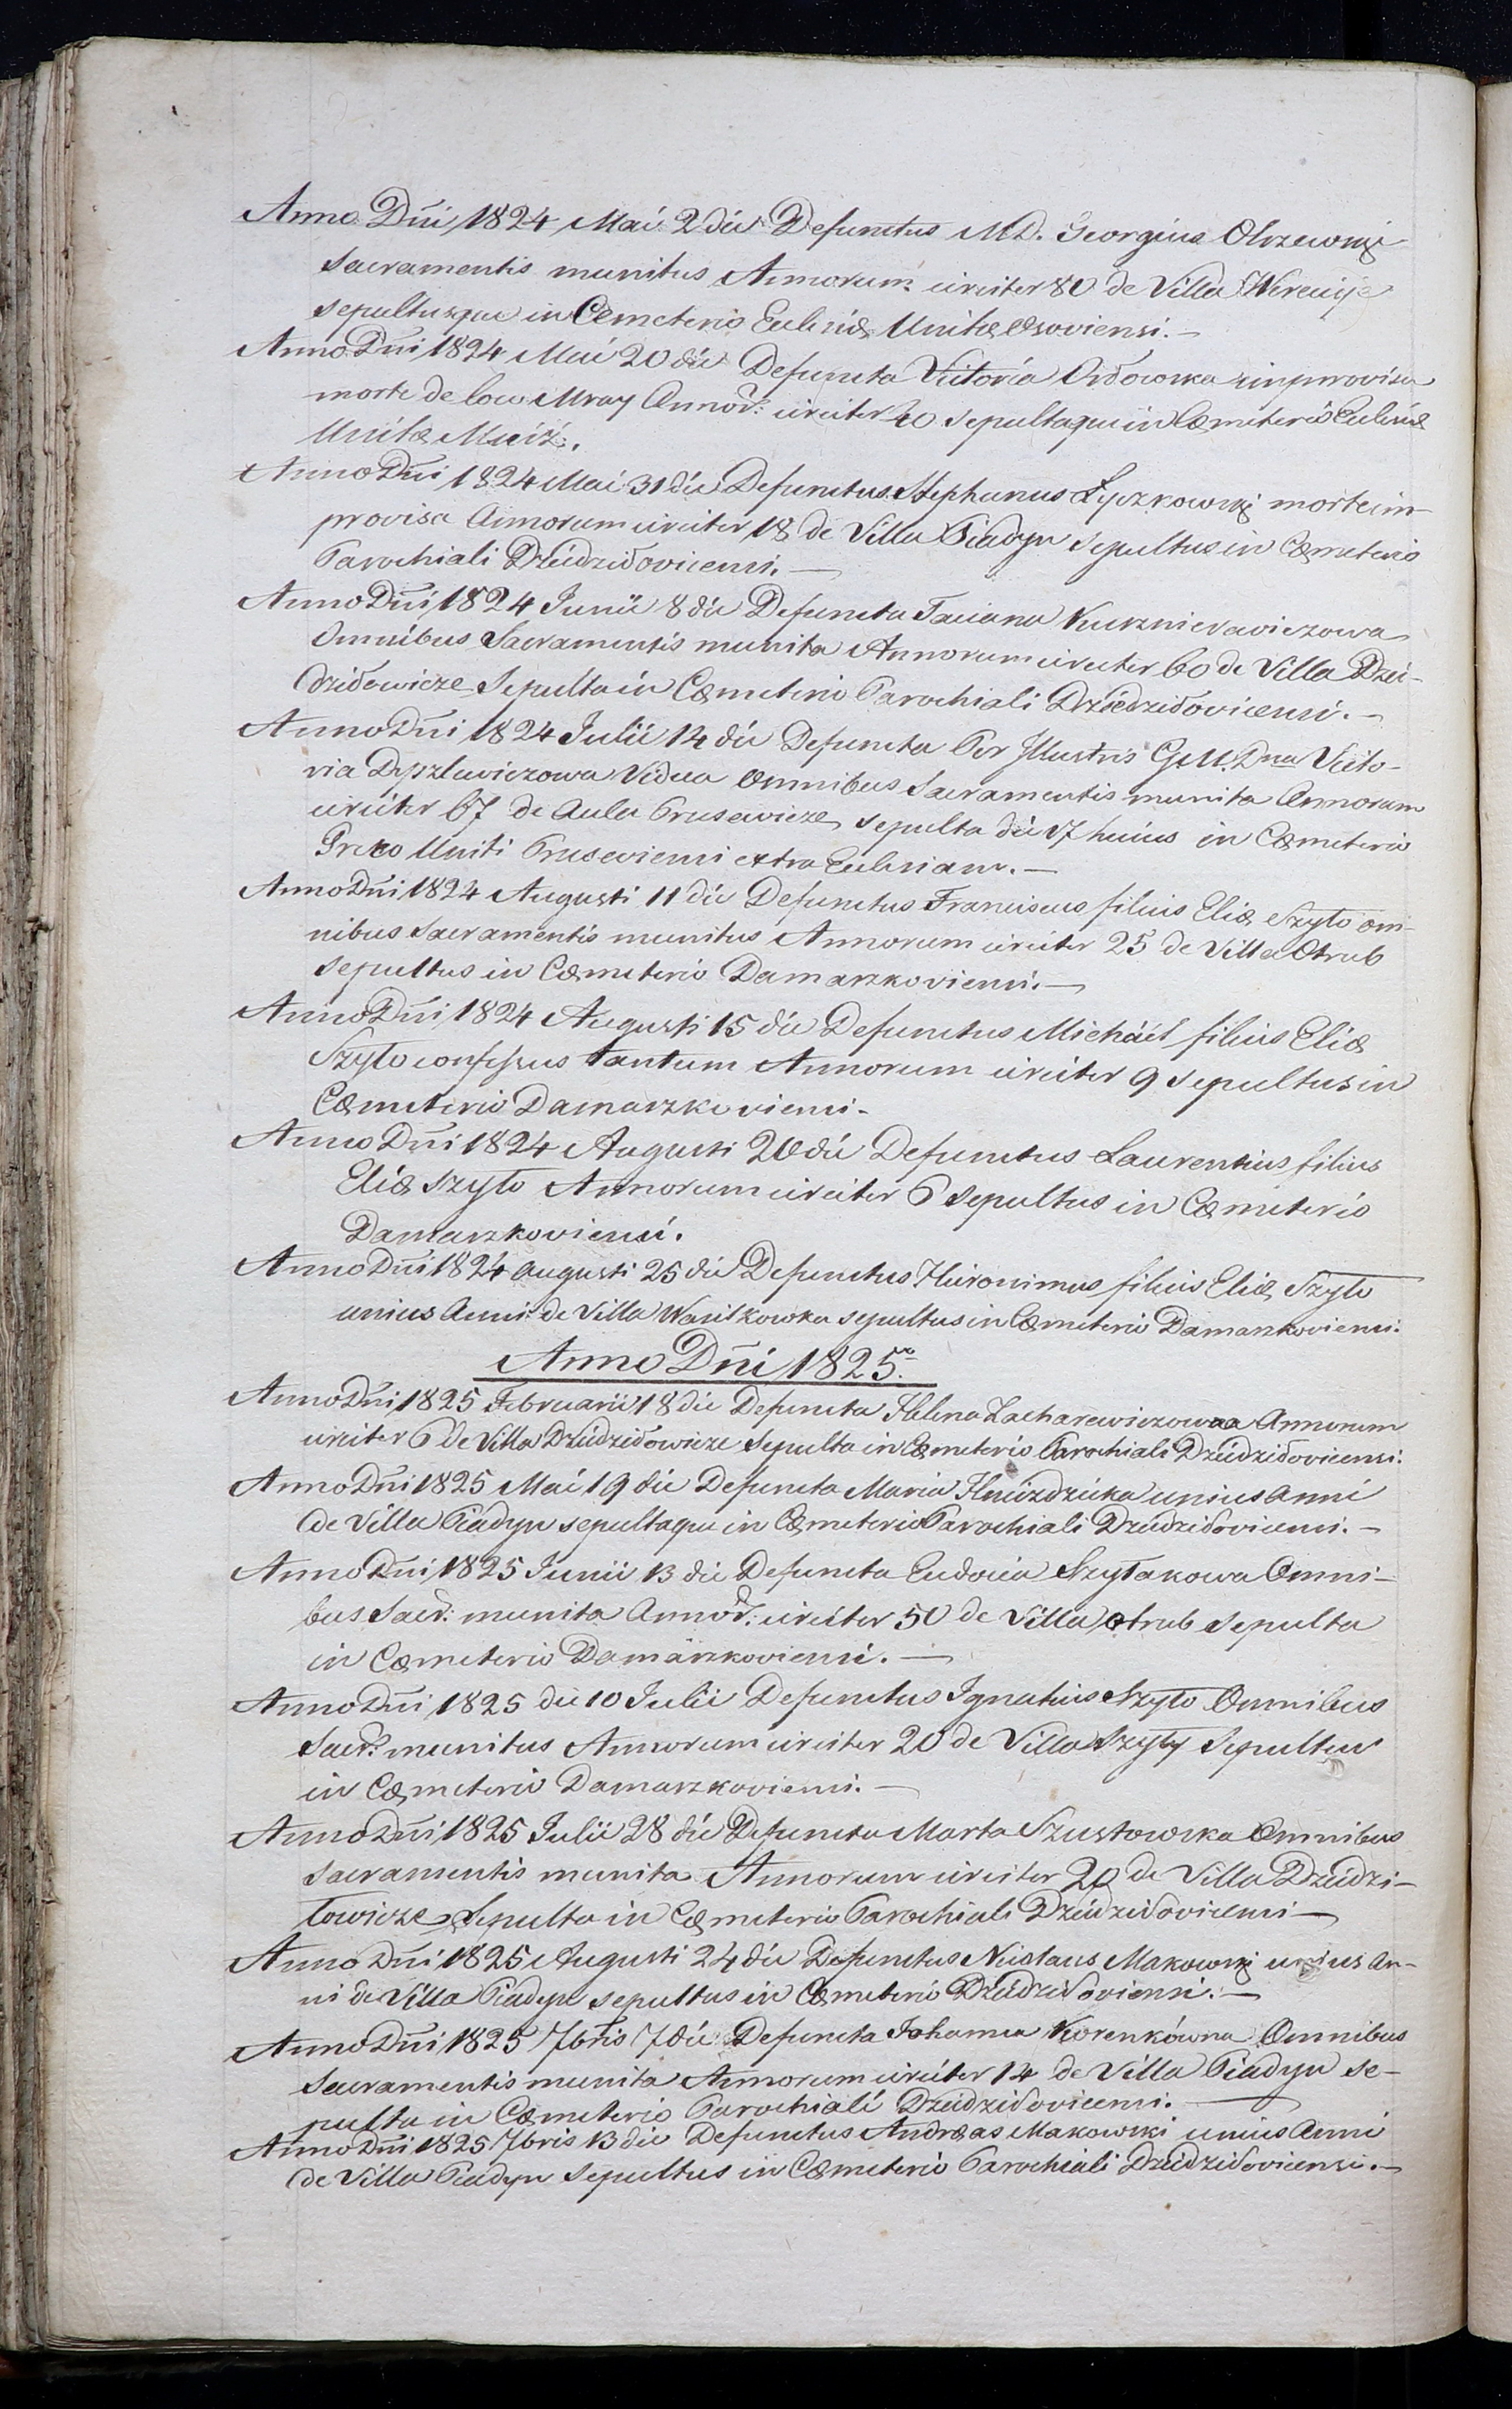 Anno Dñi 1824 Mai 2 die Defunctus M.D. Georgius Olszewski
Sacramentis munitus Annorum circiter 80 de Villa
sepultusque in Cemeterio Eclesiæ Unitæ Osoviensi. —
Anno Dñi 1824 Mai 20 die Defuncta Victoria Ordowska improvisa
morte de loco Mray Annor: circiter 40 sepultaque in Cœmeterio Eclesiæ
Unitæ
Anno Dñi 1824 Mai 31 die Defunctus Stephanus Łyczkowski morte im-
provisa Annorum circiter 18 de Villa Piadyn Sepultus in Cœmeterio
Parochiali Dziedzidovicensi. —
Anno Dñi 1824 Junii 8 die Defuncta Taciana
Omnibus Sacramentis munita Annorum circiter 60 de Villa Dzie-
dzidowicze Sepulta in Cœmeterio Parochiali Dziedzidovicensi. —
Anno Dñi 1824 Julii 14 die Defuncta Per Illustris G.M. Dna Victo-
ria Dyszlewiczowa Vidua Omnibus Sacramentis munita Annorum
circiter 67 de Aula Prusewicze sepulta die 17 huius in Cœmeterio
Greco Uniti Pruseviensi extra Eclesiam. —
Anno Dñi 1824 Augusti 11 die Defunctus Franciscus filius Eliæ Szyło om-
nibus Sacramentis munitus Annorum circiter 25 de Villa Otrub
Sepultus in Cœmeterio Damaszkoviensi. —
Anno Dñi 1824 Augusti 15 die Defunctus Michäel filius Eliæ
Szyło confessus tantum Annorum circiter 9 Sepultus in
Cœmeterio Damaszkoviensi.
Anno Dñi 1824 Augusti 20 die Defunctus Laurentius filius
Eliæ Szyło Annorum circiter 6 Sepultus in Cœmeterio
Damaszkoviensi.
Anno Dñi 1824 Augusti 25 die Defunctus Hieronimus filius Eliæ Szyło
unius Anni de Villa Wasilkowka sepultus in Cœmeterio Damaszkoviensi.
Anno Dñi 1825.
Anno Dñi 1825 Februarii 18 die Defuncta Helena Zacharewiczowna Annorum
circiter 6 de Villa Dziedzidowicze Sepulta in Cœmeterio Parochiali Dziedzidovicensi.
Anno Dñi 1825 Mai 19 die Defuncta Maria Hniezdzicka unius Anni
de Villa Piadyn sepultaque in Cœmeterio Parochiali Dziedzidovicensi. —
Anno Dñi 1825 Junii 13 die Defuncta Eudocia Szyłakowa Omni-
bus Sacr: munita Annor: circiter 50 de Villa Otrub Sepulta
in Cœmeterio Damaszkoviensi. —
Anno Dñi 1825 die 10 Julii Defunctus Ignatius Szyło Omnibus
Sacr: munitus Annorum circiter 20 de Villa Szyły Sepultus
in Cœmeterio Damaszkoviensi. —
Anno Dñi 1825 Julii 28 die Defuncta Marta Szustowska Omnibus
Sacramentis munita Annorum circiter 20 de Villa Dziedzi-
łowicze Sepulta in Cœmeterio Parochiali Dziedzidovicensi —
Anno Dñi 1825 Augusti 24 die Defunctus Nicolaus Makowski unius An-
ni de Villa Piadyn sepultus in Cœmeterio Dziedzidoviensi. —
Anno Dñi 1825 7bris 7 die Defuncta Johanna Korenkówna Omnibus
Sacramentis munita Annorum circiter 14 de Villa Piadyn se-
pulta in Cœmeterio Parochiali Dziedzidovicensi. —
Anno Dñi 1825 7bris 13 die Defunctus Andreas Makowski unius Anni
de Villa Piadyn Sepultus in Cœmeterio Parochiali Dziedzidovicensi. —